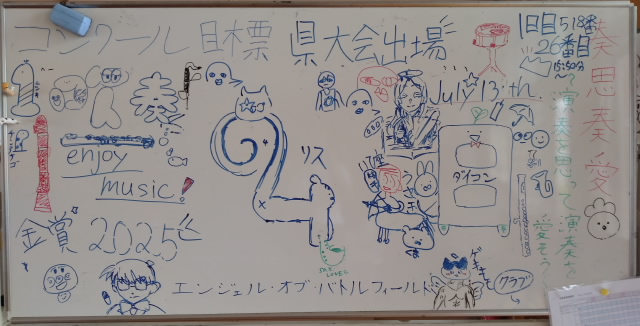 コンクール目標 県大会出場
1日目518番
26番目
15:50分〜
奏思奏愛
〜演奏を思って演奏を愛そう〜
July 13th
enjoy
music!
リス
ダイコン
金賞 2025
エンジェル・オブ・バトルフィールド
クラブ